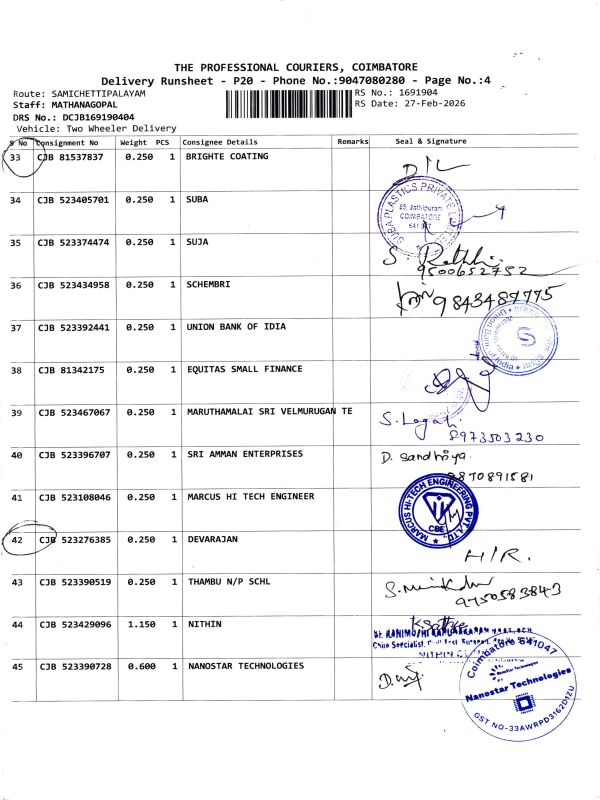 THE PROFESSIONAL COURIERS, COIMBATORE
Delivery Runsheet - P20 - Phone No.:9047080280 - Page No.:4
Route: SAMICHETTIPALAYAM
RS No.: 1691904
Staff: MATHANAGOPAL
RS Date: 27-Feb-2026
DRS No.: DCJB169190404
Vehicle: Two Wheeler Delivery
S No Consignment No Weight PCS Consignee Details Remarks Seal & Signature
33 CJB 81537837 0.250 1 BRIGHTE COATING D/L
34 CJB 523405701 0.250 1 SUBA
SUBA PLASTICS PRIVATE LIMITED
COIMBATORE
35 CJB 523374474 0.250 1 SUJA
9500652752
36 CJB 523434958 0.250 1 SCHEMBRI 9843487775
37 CJB 523392441 0.250 1 UNION BANK OF IDIA
38 CJB 81342175 0.250 1 EQUITAS SMALL FINANCE
39 CJB 523467067 0.250 1 MARUTHAMALAI SRI VELMURUGAN TE
8973503230
40 CJB 523396707 0.250 1 SRI AMMAN ENTERPRISES D. Sandhiya
8870891581
41 CJB 523108046 0.250 1 MARCUS HI TECH ENGINEER
MARCUS HI-TECH ENGINEERING PVT. LTD.
CBE
42 CJB 523276385 0.250 1 DEVARAJAN H/R.
43 CJB 523390519 0.250 1 THAMBU N/P SCHL
9750583843
44 CJB 523429096 1.150 1 NITHIN
45 CJB 523390728 0.600 1 NANOSTAR TECHNOLOGIES
Coimbatore 641047
Nanostar Technologies
GST NO-33AWRPD3162D1ZU